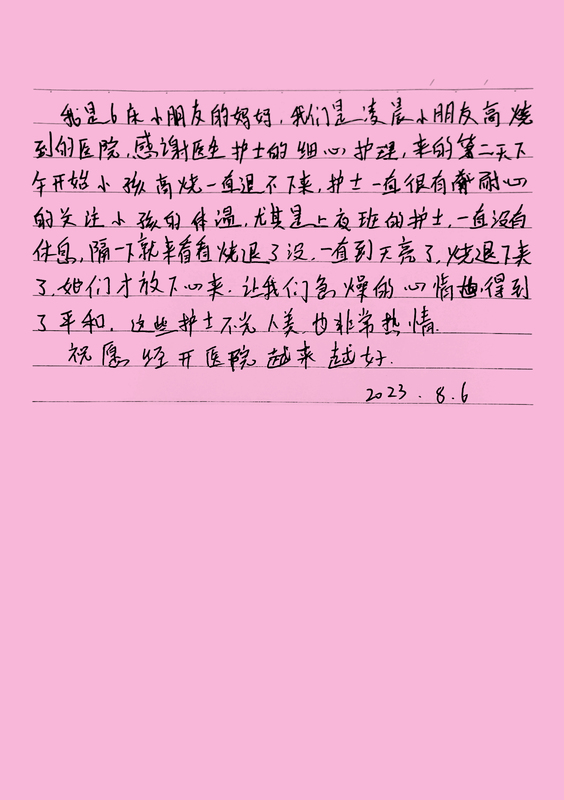 我是6床小朋友的妈妈，我们是凌晨小朋友高烧
到的医院，感谢医生护士的细心护理，来的第二天下
午开始小孩高烧一直退不下来，护士一直很有耐心
的关注小孩的体温，尤其是上夜班的护士，一直没有
休息，隔一下就来看看烧退了没，一直到天亮了，烧退下来
了，她们才放下心来．让我们急燥的心情也得到
了平和．这些护士不光人美也非常热情．
祝愿经开医院越来越好．
2023．8．6